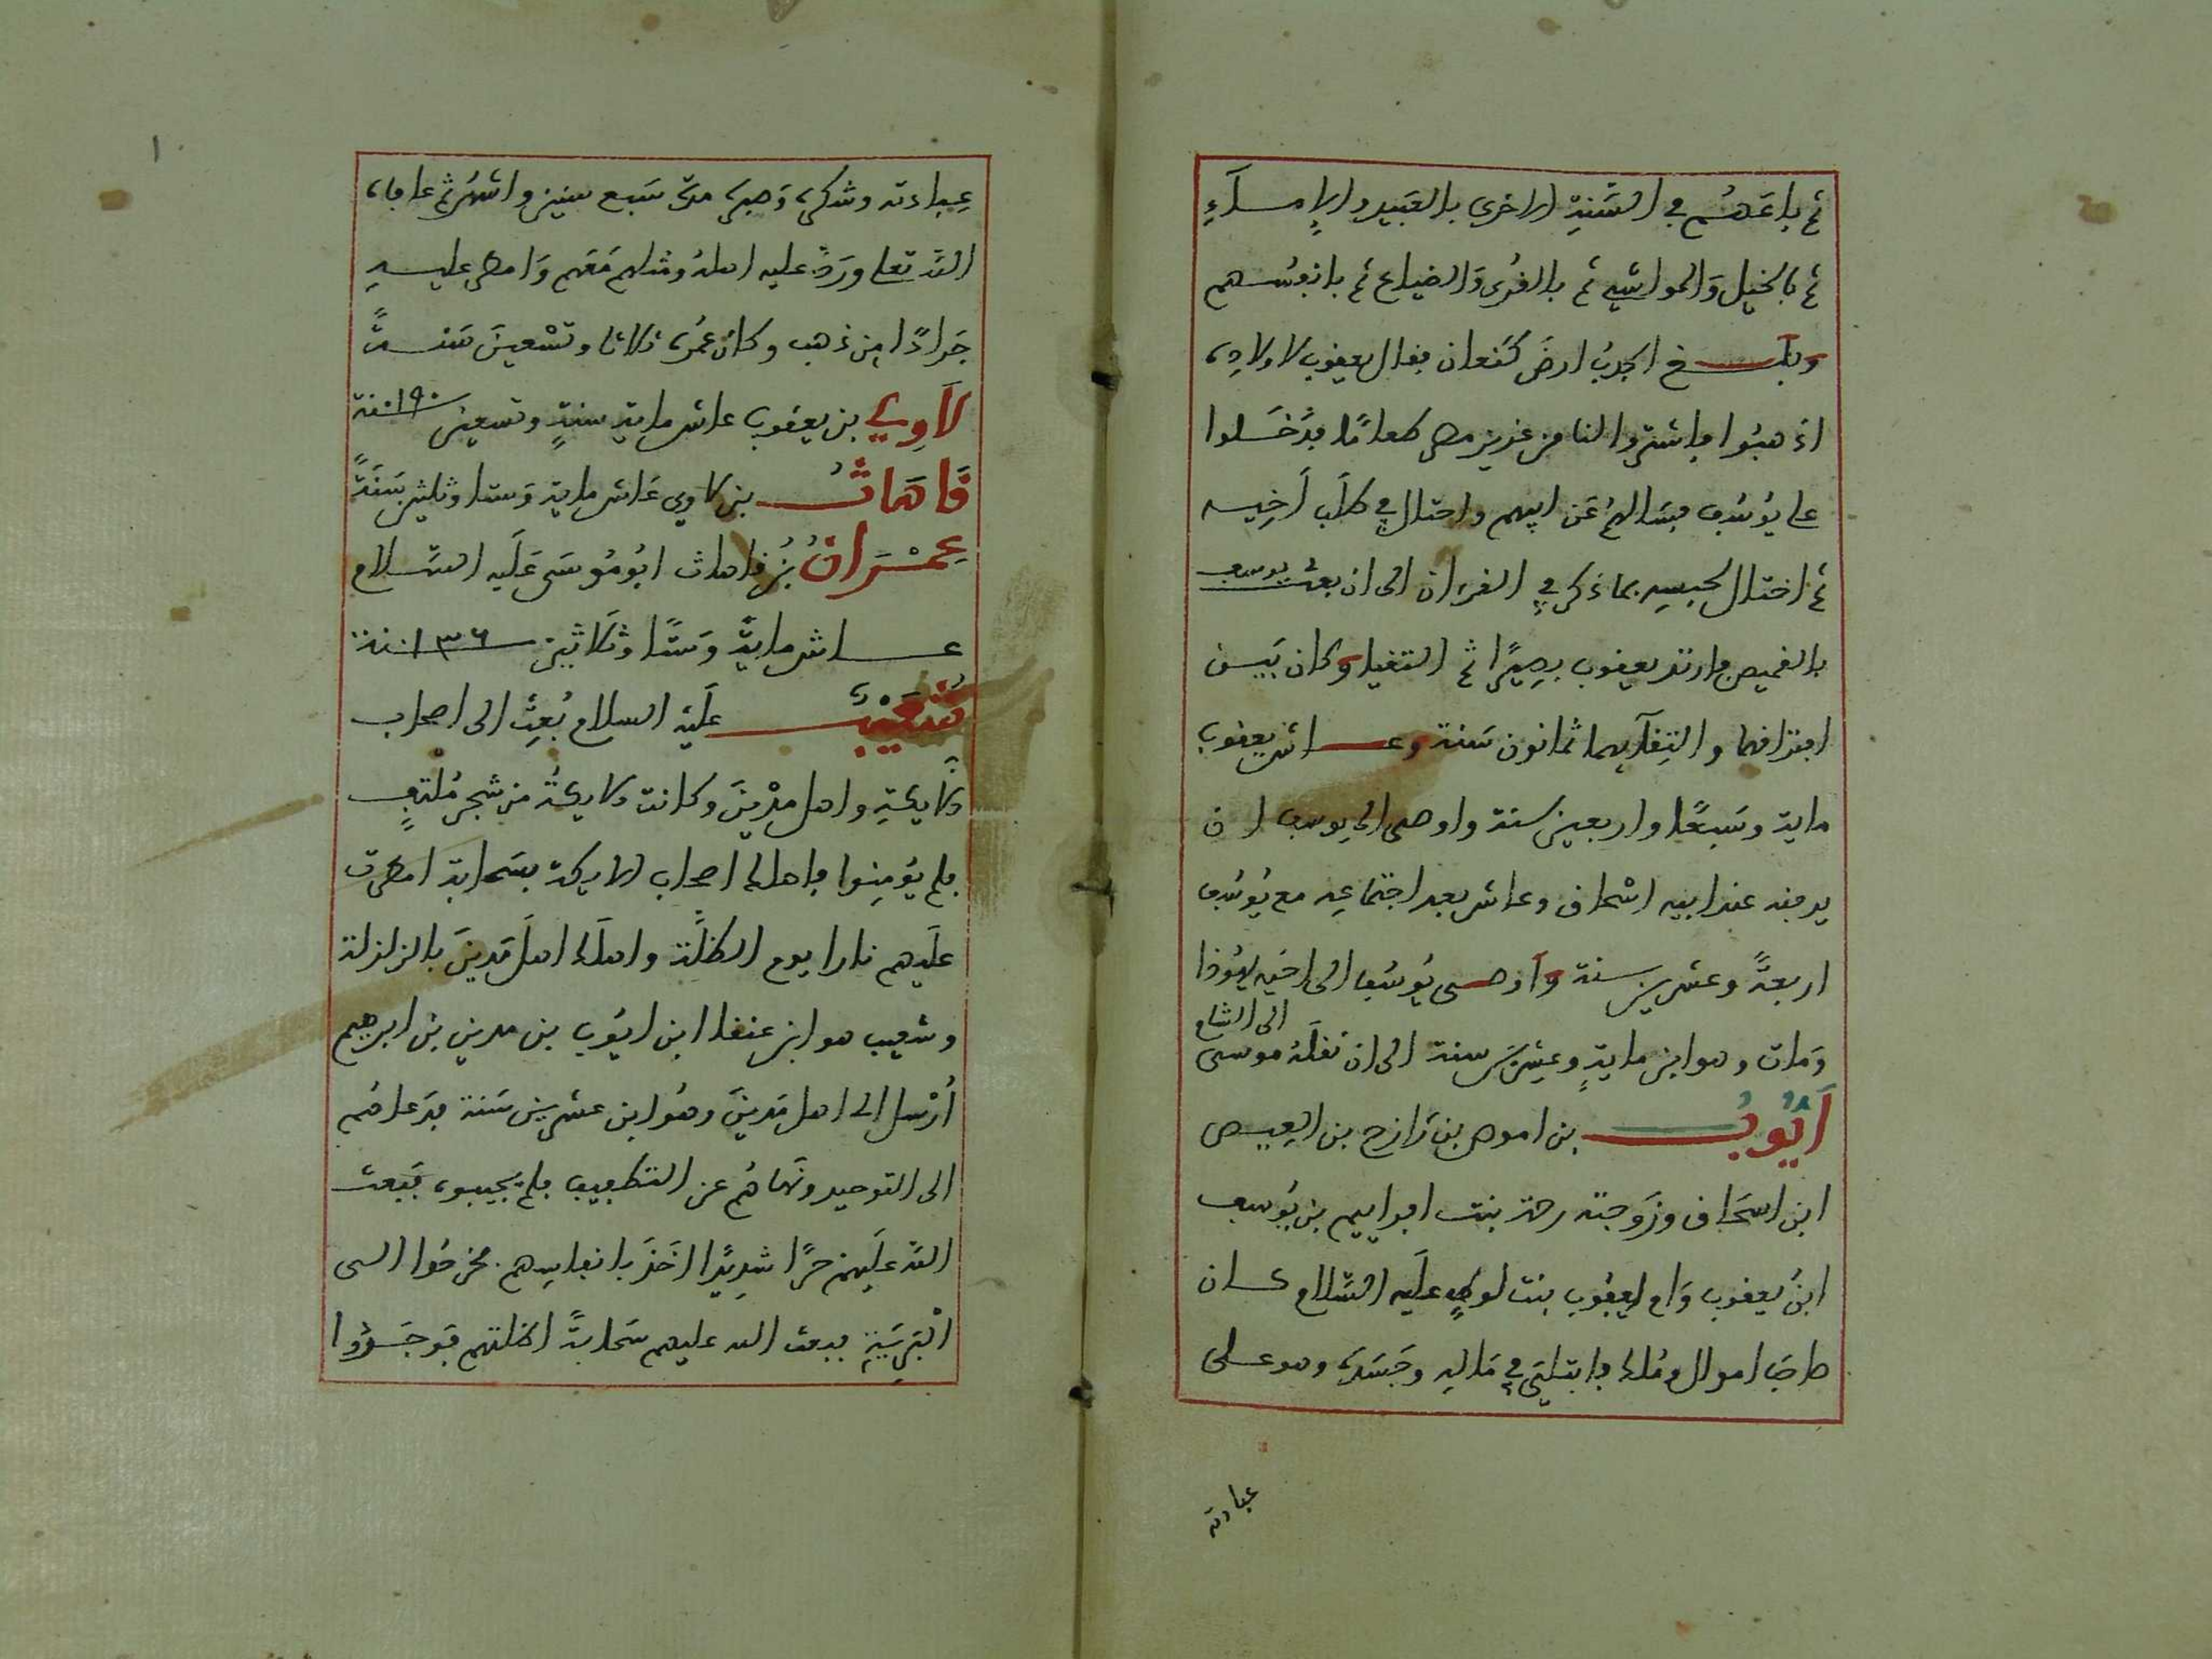 ثم باعهم في السَّنةِ الاخري بالعبيد والإماءِ
ثم بالخيل وَالمواشي ثم بالقُرى وَالضياع ثم بانفسهم
وبلغ الجدبُ ارضَ كنعان فقال يعقوب لاولاده
اذهبوا فاشتروا لنا من عزيز مصر طعامًا فدَخَلوا
على يُوسُف فسَالهُم عَن ابيهم واحتال في طلَب أخِيه
ثم احتال لحبسِه بما ذكر في القران الى ان بعث يوسف
بالقميص فارتد يعقوب بصِيرًا ثم التقيا وكان بَيـن
افتراقهما والتِقآيهما ثمانون سَنة وعـاش يعقوب
ماية وسَبعًا واربعين سنة واوصى الى يوسف ان
يدفنه عند ابيه اسْحاق وعاش بعد اجتماعِه مع يُوسُف
اربعةً وعشرين سنة وَاوصى يُوسُف الى اخيه يهُوذا
وَمات وهو ابن مايةٍ وعِشرين سنة الى ان نقلَهُ موسى الى الشام
أَيُّوبُ بن اموص بن رَازح بن العِيـص
ابن اسحَاق وزَوجته رحمة بنت افراييم بن يُوسف
ابنُ يعقوب وَام ايعقُوب بنت لوطٍ عليه السَّلام كـان
صاحب اموال ومُلك فابتليَ في مَالِهِ وجَسَدِه وهو عـلى
عبادته
عِبادته وشكره وَصبره مدة سَبع سنين واشهُر ثم عافاه
الله تعا ورَدّ عليه اهلهُ ومثلهم مَعَهم وَامطر عليـه
جَرادًا مِن ذهب وكان عمُره ثلاثا وتسْعينَ سَنـةً
لَاوِي بن يعقوب عاش ماية سنةٍ وتسعين ١٩٠ سنة
قَاهَاثُ بن لاوي عَاش ماية وَستا وثلثين سَنَةً
عِمْرَانُ بنُ قاهاث ابُو مُوسَى عَلَيه السَّلام
عـاش مايةً وَستًا وثَلاثين ١٣٦ سنة
شُعَيْبُ عليْهِ السلام بُعِثَ الى اصحاب
الأَيكةِ واهل مدْينَ وكانت الايكةُ من شجر مُلتفٍ
فلم يؤمِنوا فاهلك اصحاب الايكة بسَحابة امطرت
عليهم نارا يوم الظلَّة واهلك اهلَ مَدينَ بالزلزلة
وشعيب هو ابن عنقا ابن ايوُب بن مدين بن ابرهيم
أُرْسل الى اهل مَدينَ وهُو ابن عشرين سَنة فدَعاهُم
الى التوحيد ونَهاهُم عن التطفيف فلم يجيبوه فَبَعث
الله عَليهم حرًا شدِيدًا اخَذَ بانفاسِهم فخرجُوا الـى
البَرِيَّةِ فبعث الله عليهم سَحابةً اظلتهم فوجَـدُوا
١٠